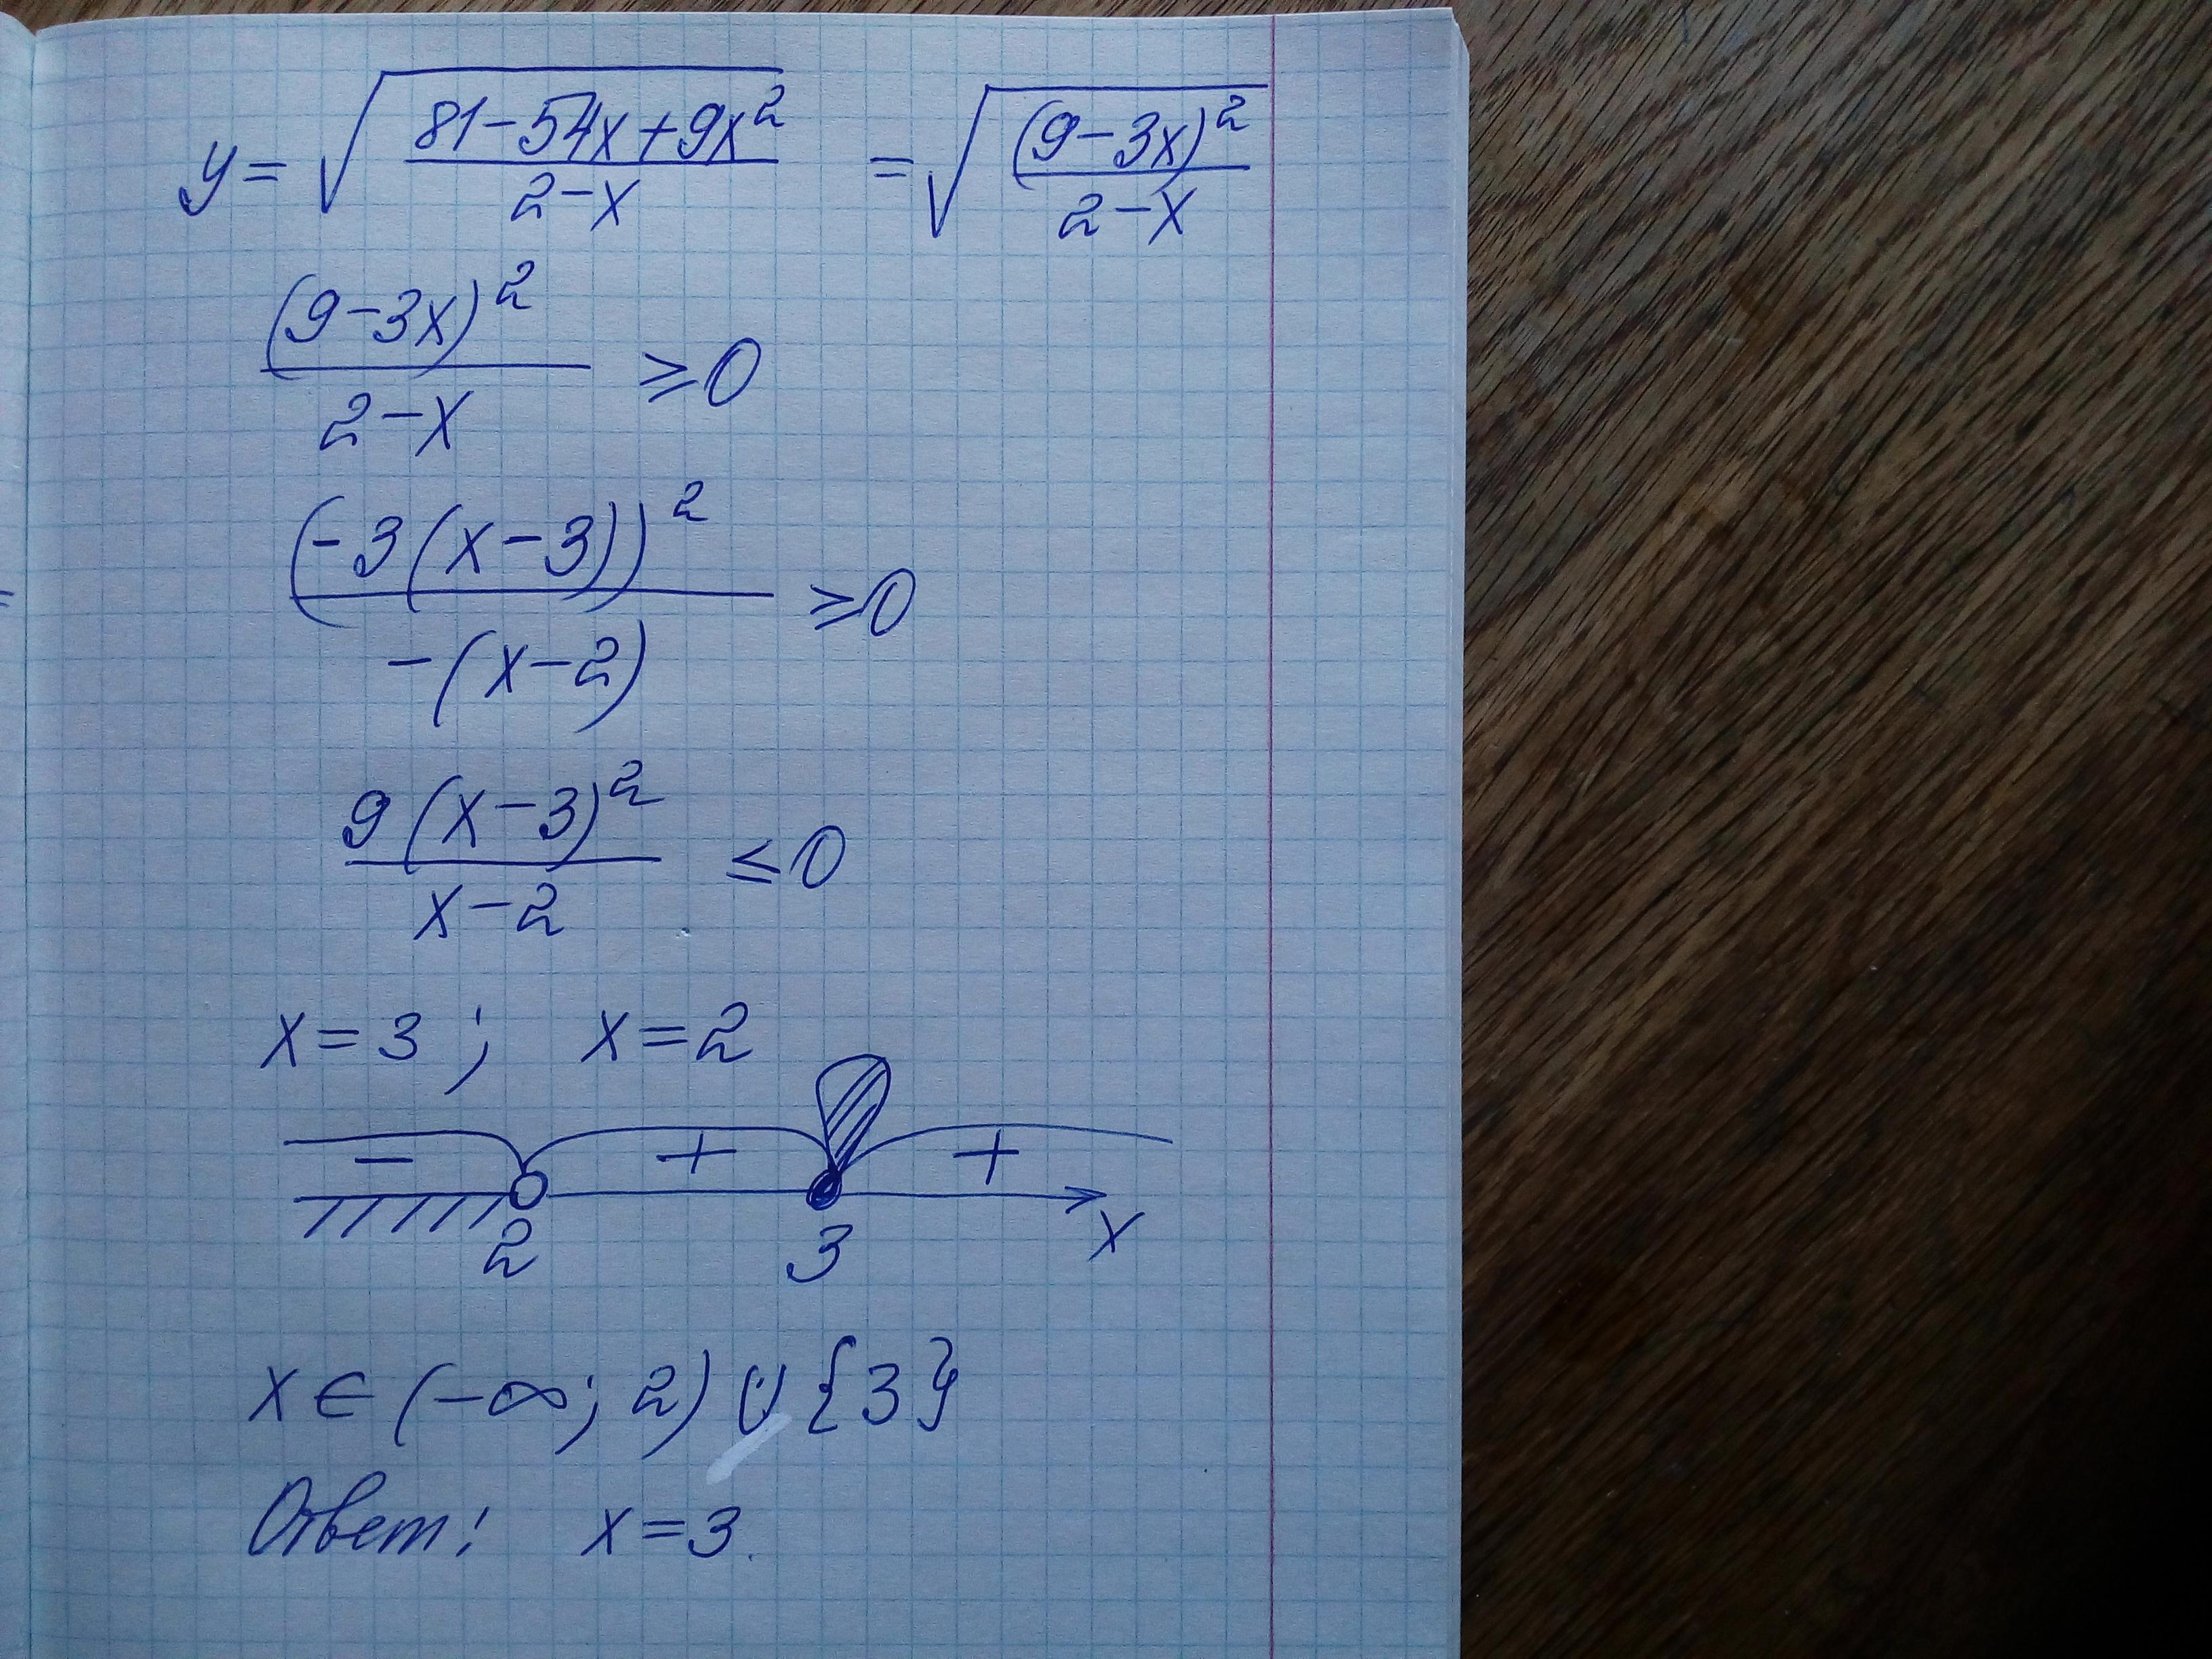 y = √((81-54x+9x²)/(2-x)) = √((9-3x)²/(2-x))
(9-3x)²/(2-x) ⩾ 0
(-3(x-3))²/(-(x-2)) ⩾ 0
9(x-3)²/(x-2) ⩽ 0
x = 3 ; x = 2
- + +
2 3 x
x ∈ (-∞; 2) ∪ {3}
Ответ: x = 3.